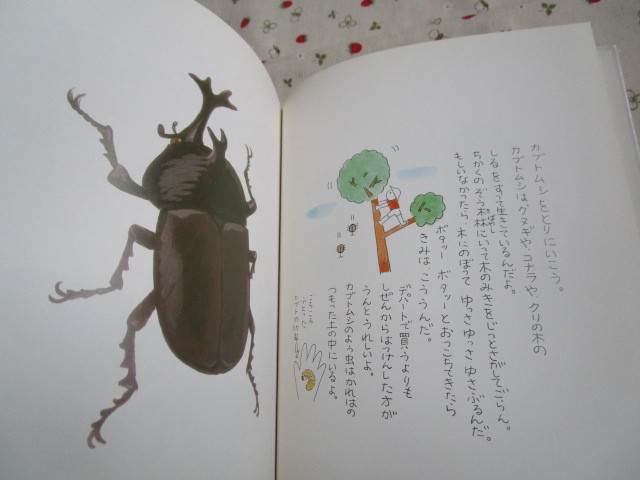 カブトムシをとりにいこう。
カブトムシは、クヌギや、コナラや、クリの木の
しるをすって生きているんだよ。
ちかくのぞう木林にいって木のみきをじっとさがしてごらん。
ばやし
もしいなかったら 木にのぼって ゆっさゆっさ ゆさぶるんだ。
ボタッー ボタッーとおっこちてきたら
きみは こううんだ。
デパートで買うよりも
しぜんからはっけんした方が
うんとうれしいよ。
カブトムシのよう虫はかれはの
つもった土の中にいるよ。
ころころ
ふとった
カブトの幼虫だよ